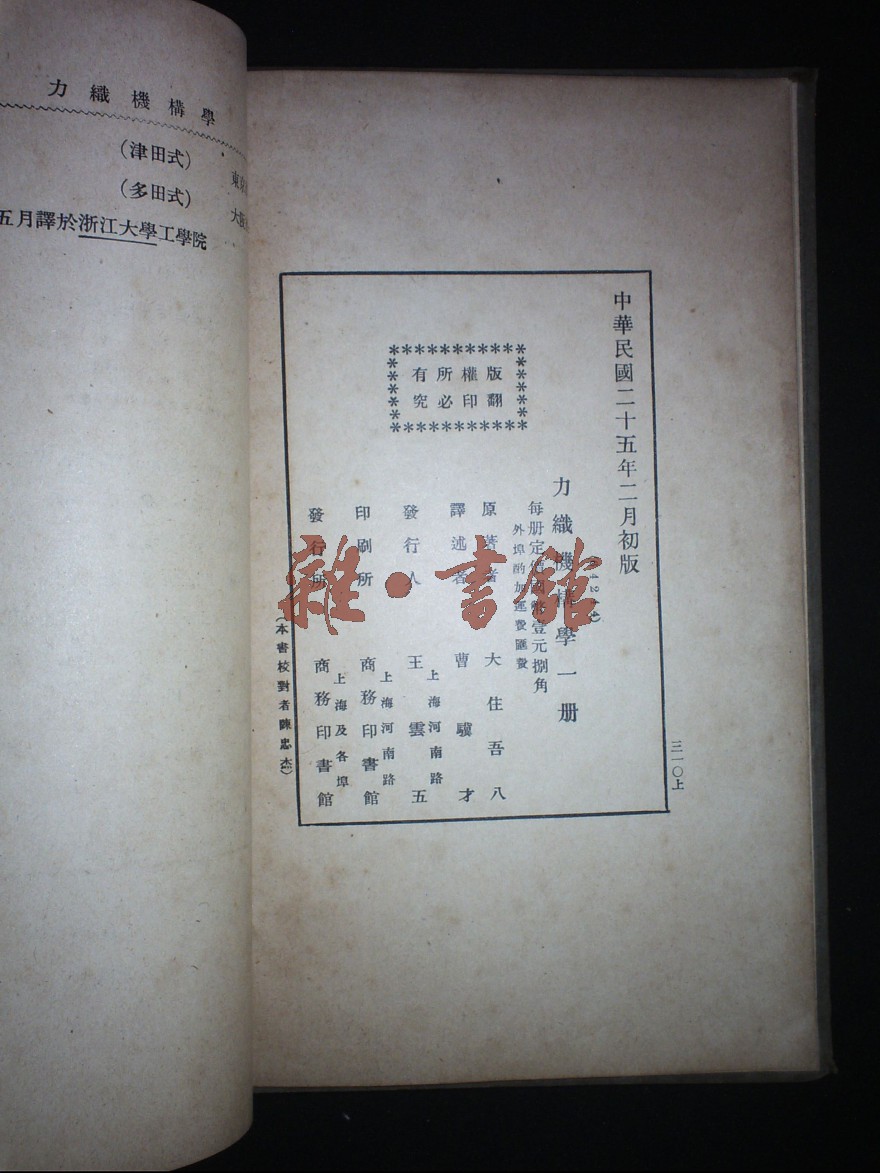 力織機構學
(津田式)
(多田式)
五月譯於浙江大學工學院
中華民國二十五年二月初版
版權所有
翻印必究
力織機構學一册
每册定價國幣壹元捌角
外埠酌加運費匯費
原著者 大住吾八
譯述者 曹驥才
發行人 王雲五
上海河南路
印刷所 商務印書館
上海河南路
發行所 商務印書館
上海及各埠
(本書校對者陳忠杰)
三一〇上
雜·書館